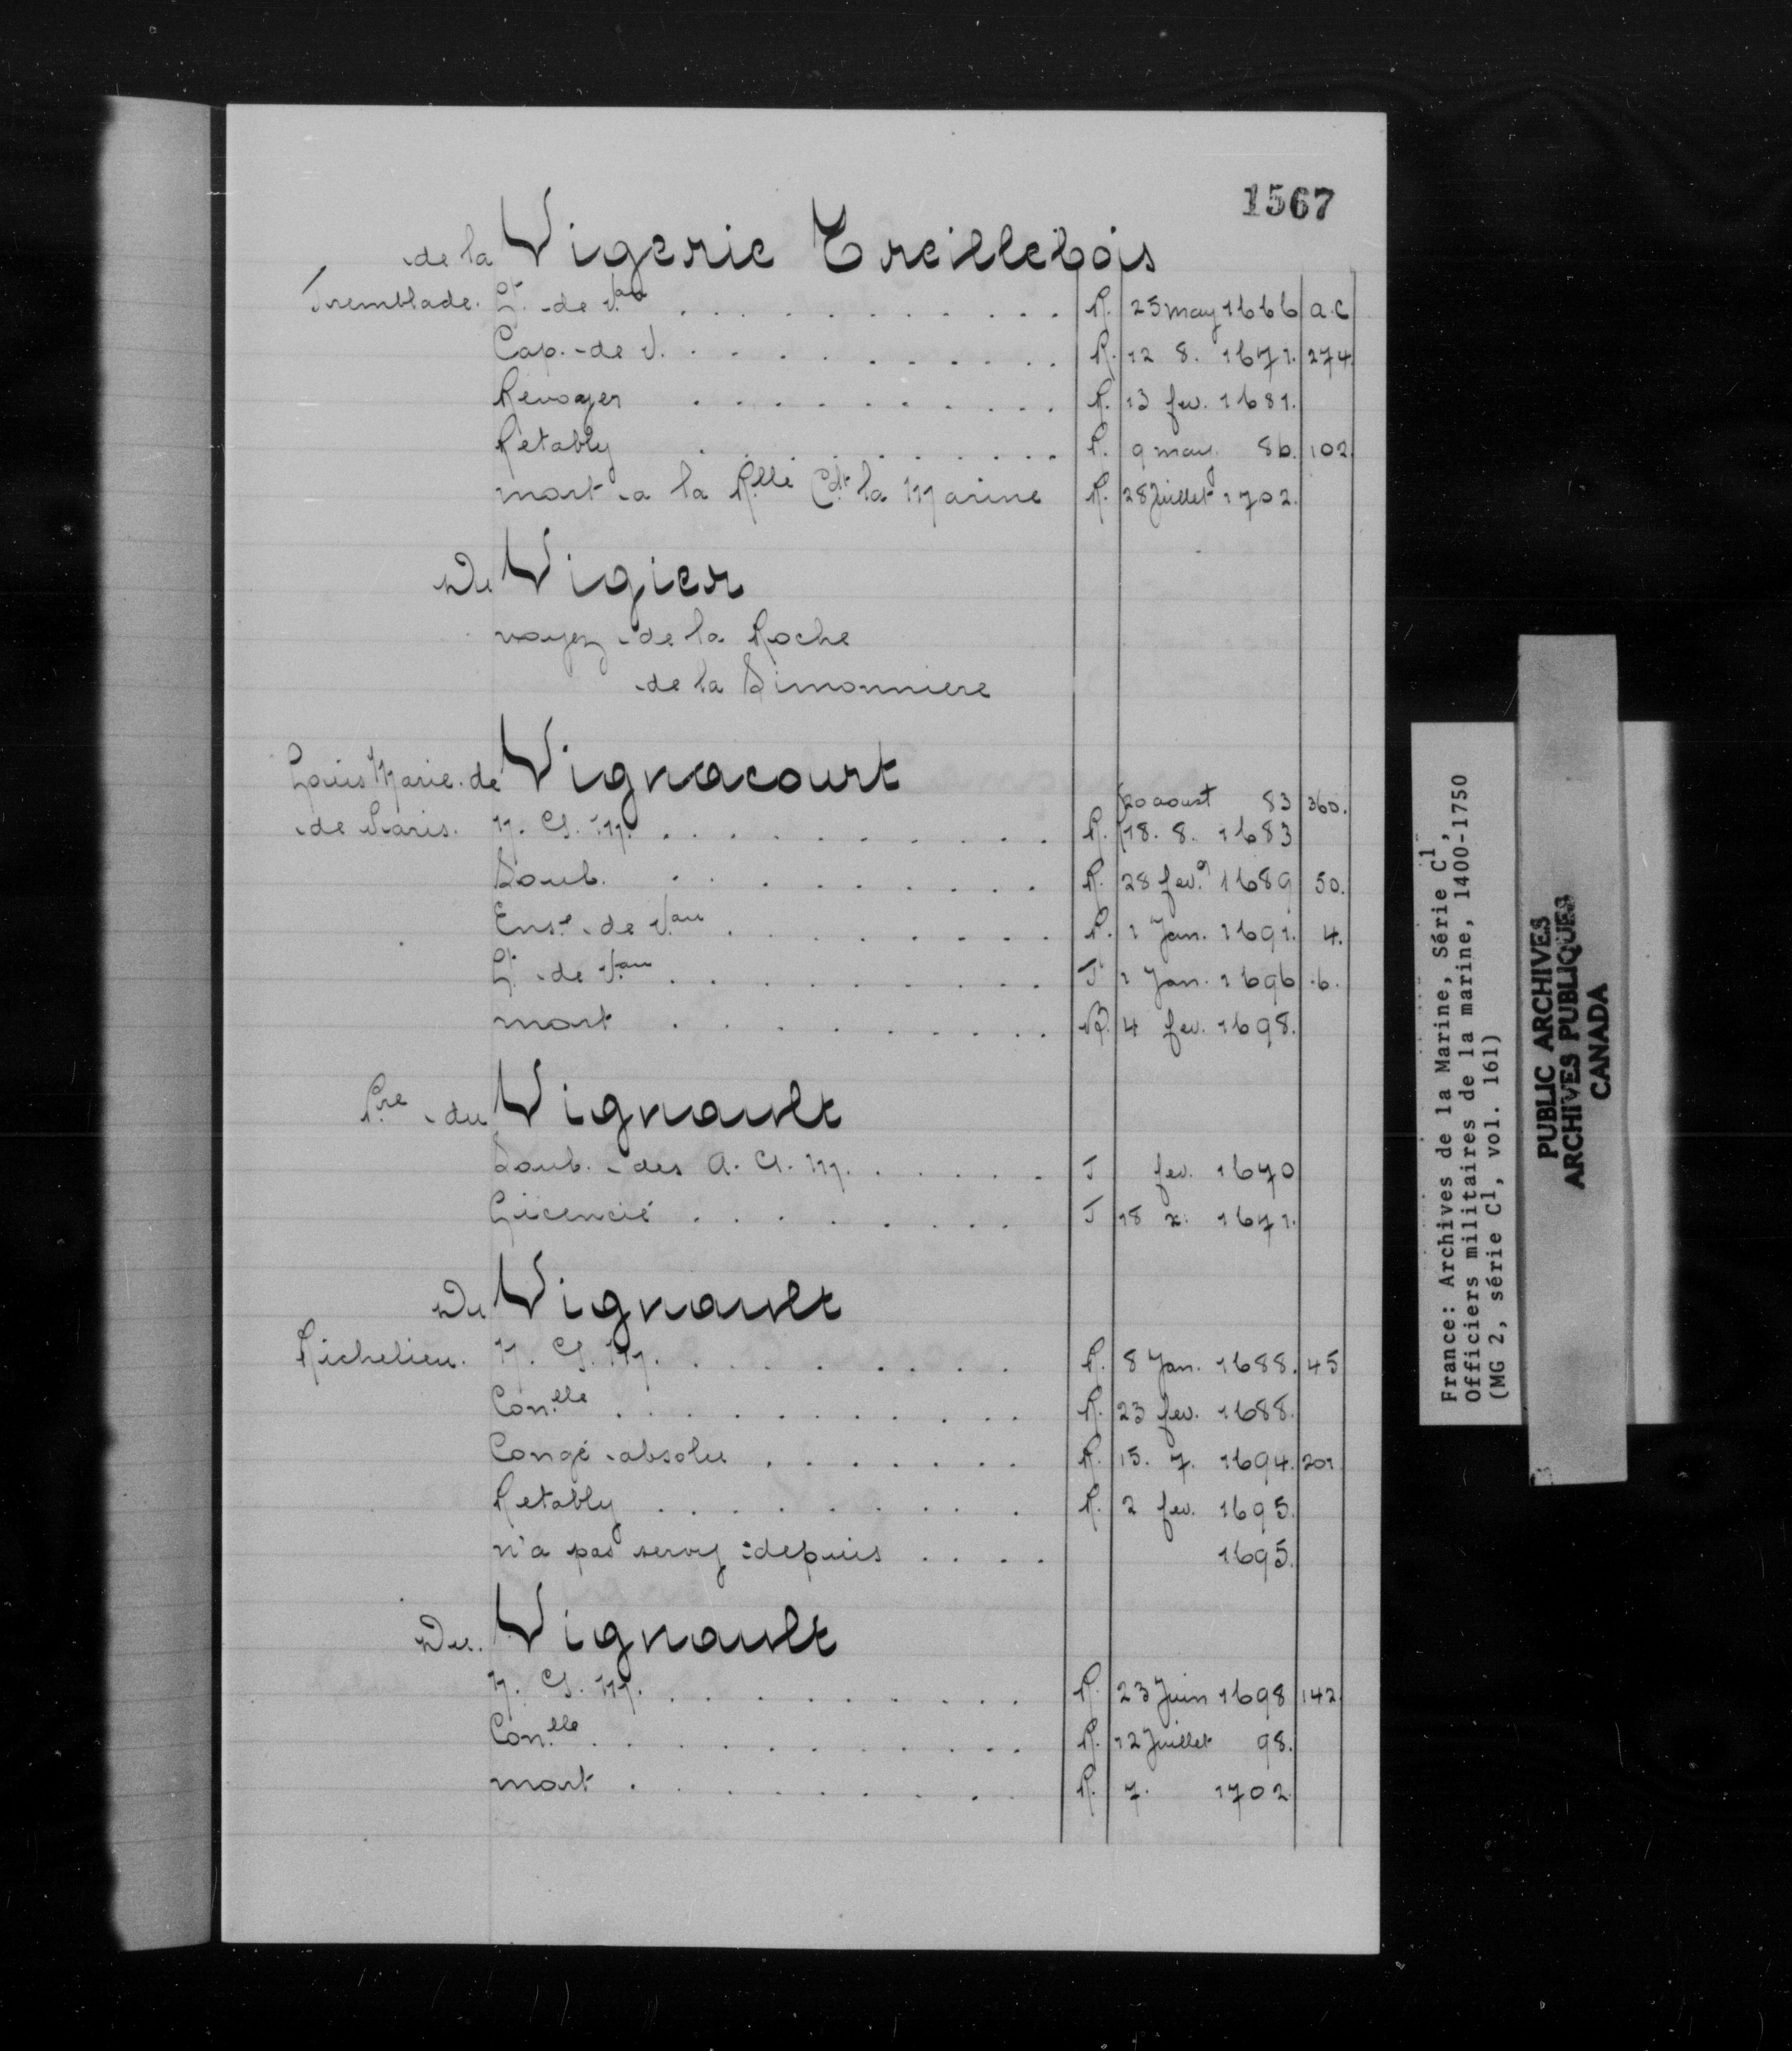 1567
de la Vigerie Treillebois
Tremblade. Lt. de Vau . . . . . . . . . . R. 25 may 1666 a.c
Cap. de V. . . . . . . . . . . R. 12 8. 1671. 274.
Renvoyer . . . . . . . . . . R. 13 fev. 1681.
Retably . . . . . . . . . . R. 9 may. 86. 102.
mort a la Rlle Cdt la Marine R. 28 Juillet 1702.
De Vigier
voyez de la Roche
de la Simonniere
Louis Marie de Vignacourt
20 aoust 83 360.
de Paris. N. G. M. . . . . . . . . . . R. 18. 8. 1683
Soub. . . . . . . . . . R. 28 fev. 1689 50.
Ense de Vau . . . . . . . . . R. 1 Jan. 1691. 4.
Lt de Vau . . . . . . . . . . T 1 Jan. 1696 6.
mort . . . . . . . . . 4 fev. 1698.
Pre du Vignault
Soub. des A. G. M. . . . . . . T fev. 1670
Licencié . . . . . . . . T 18 x. 1671.
Du Vignault
Richelieu. N. G. M. . . . . . . . . . R. 8 Jan. 1688. 45
Conlle . . . . . . . . . . R. 23 fev. 1688.
Congé absolu . . . . . . . R. 15. 7. 1694. 201.
Retably . . . . . . . . R. 2 fev. 1695.
n'a pas servy depuis . . . . 1695.
Du. Vignault
N. G. M. . . . . . . . . . . R. 23 Juin 1698 142.
Conlle . . . . . . . . . . R. 12 Juillet 98.
mort . . . . . . . . . R. 7. 1702.
France: Archives de la Marine, Série C1,
Officiers militaires de la marine, 1400-1750
(MG 2, série C1, vol. 161)
PUBLIC ARCHIVES
ARCHIVES PUBLIQUES
CANADA